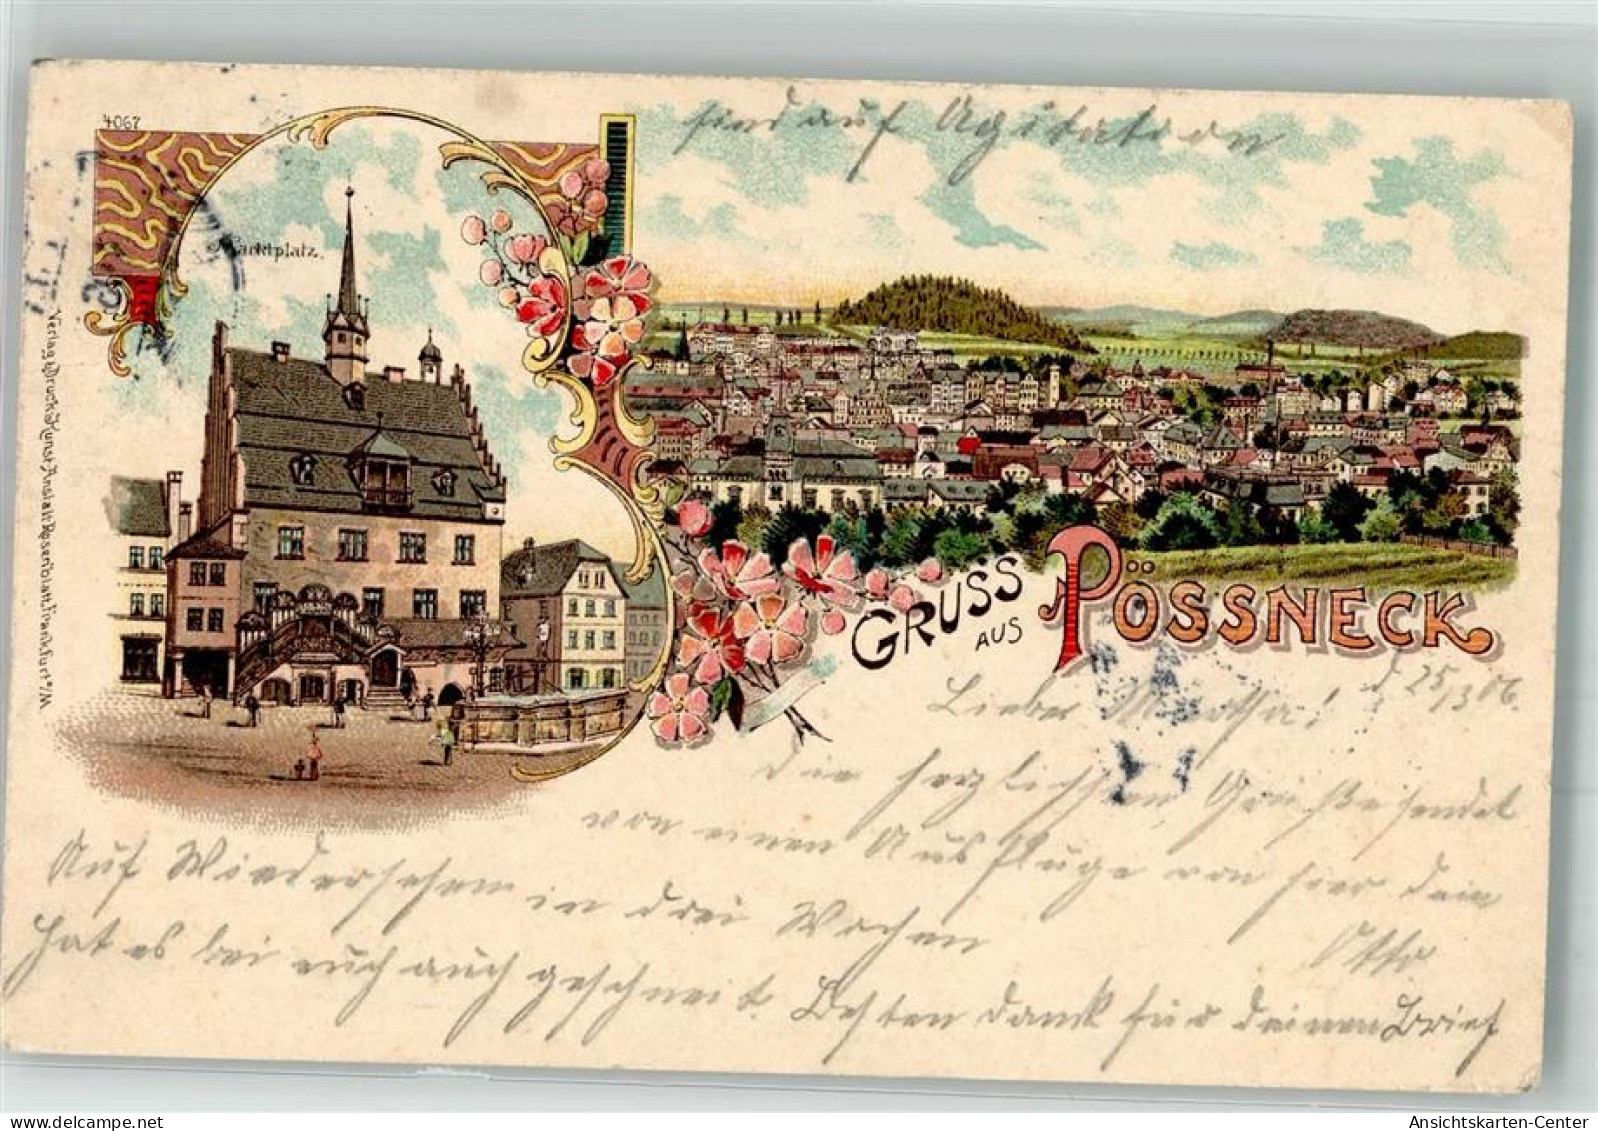 4067
sind auf Agitation
Marktplatz.
Verlag & Druck Kunst-Anstalt Rosenblatt, Frankfurt a/M
GRUSS
AUS
PÖSSNECK
d 25/3 06.
Lieber Martha!
Die herzlichsten Grüße sendet
von einen Ausfluge von hier dein
Otto
Auf Wiedersehen in drei Wochen
hat es bei euch auch geschneit. Besten Dank für deinen Brief
Ansichtskarten-Center